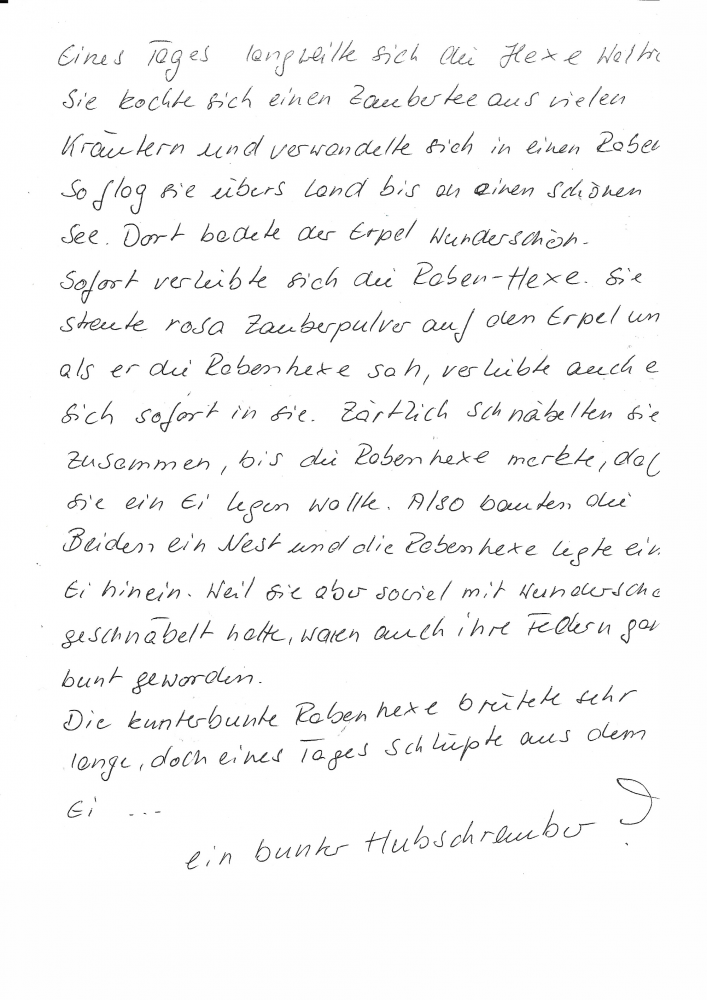 Eines Tages langweilte sich die Hexe Waltr
Sie kochte sich einen Zaubertee aus vielen
Kräutern und verwandelte sich in einen Raben
So flog sie übers Land bis an einen schönen
See. Dort badete der Erpel Wunderschön.
Sofort verliebte sich die Raben-Hexe. Sie
streute rosa Zauberpulver auf den Erpel un
als er die Rabenhexe sah, verliebte auch e
sich sofort in sie. Zärtlich schnäbelten sie
zusammen, bis die Rabenhexe merkte, daß
sie ein Ei legen wollte. Also bauten die
Beiden ein Nest und die Rabenhexe legte ein
Ei hinein. Weil sie aber soviel mit Wunderschö
geschnäbelt hatte, waren auch ihre Federn gan
bunt geworden.
Die kunterbunte Rabenhexe brütete sehr
lange, doch eines Tages schlüpfte aus dem
Ei ...
ein bunter Hubschrauber ?